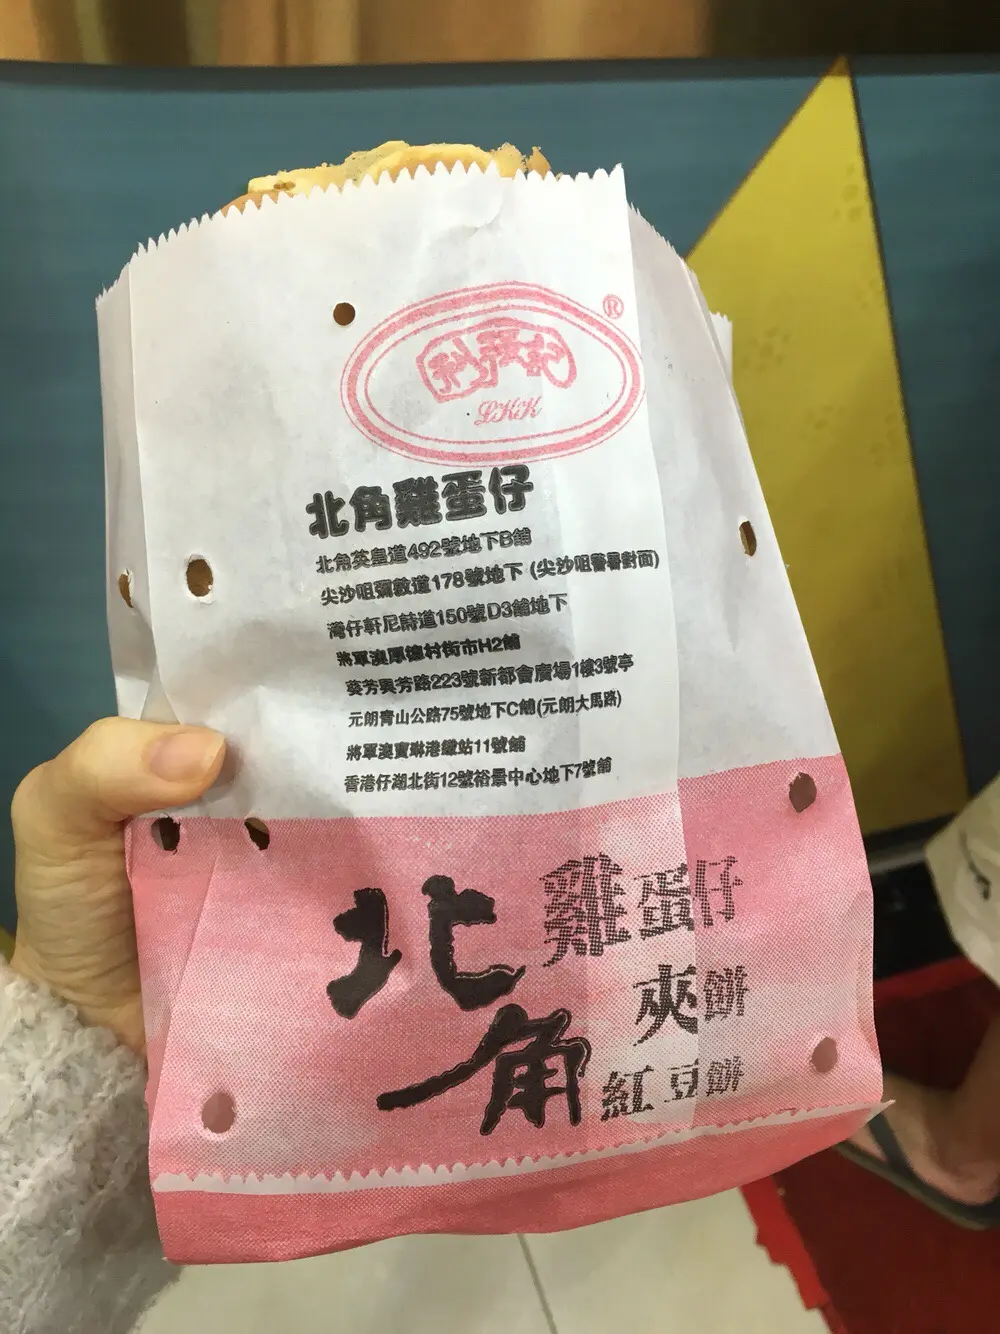 ®
LKK
北角雞蛋仔
北角英皇道492號地下B舖
尖沙咀彌敦道178號地下 (尖沙咀警署對面)
灣仔軒尼詩道150號D3舖地下
將軍澳厚德村街市H2舖
葵芳興芳路223號新都會廣場1樓3號亭
元朗青山公路75號地下C舖(元朗大馬路)
將軍澳寶琳港鐵站11號舖
香港仔湖北街12號裕景中心地下7號舖
北角
雞蛋仔
夾餅
紅豆餅